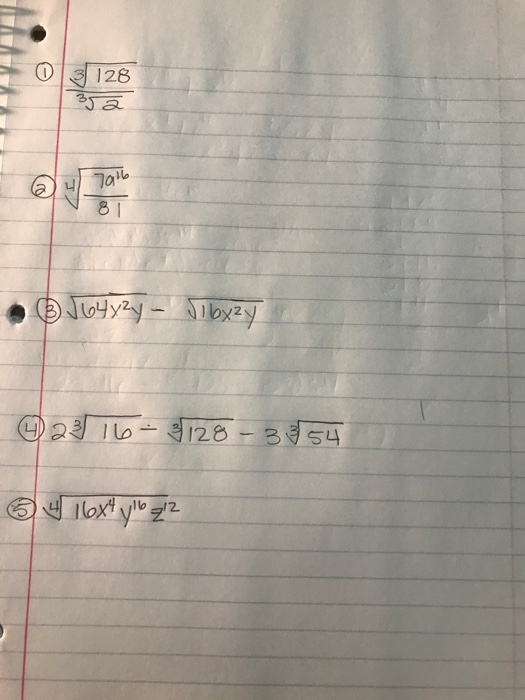 ① ∛128 / ∛2
② ∜(7a¹⁶ / 81)
③ √64x²y − √16x²y
④ 2∛16 − ∛128 − 3∛54
⑤ ∜16x⁴y¹⁶z¹²